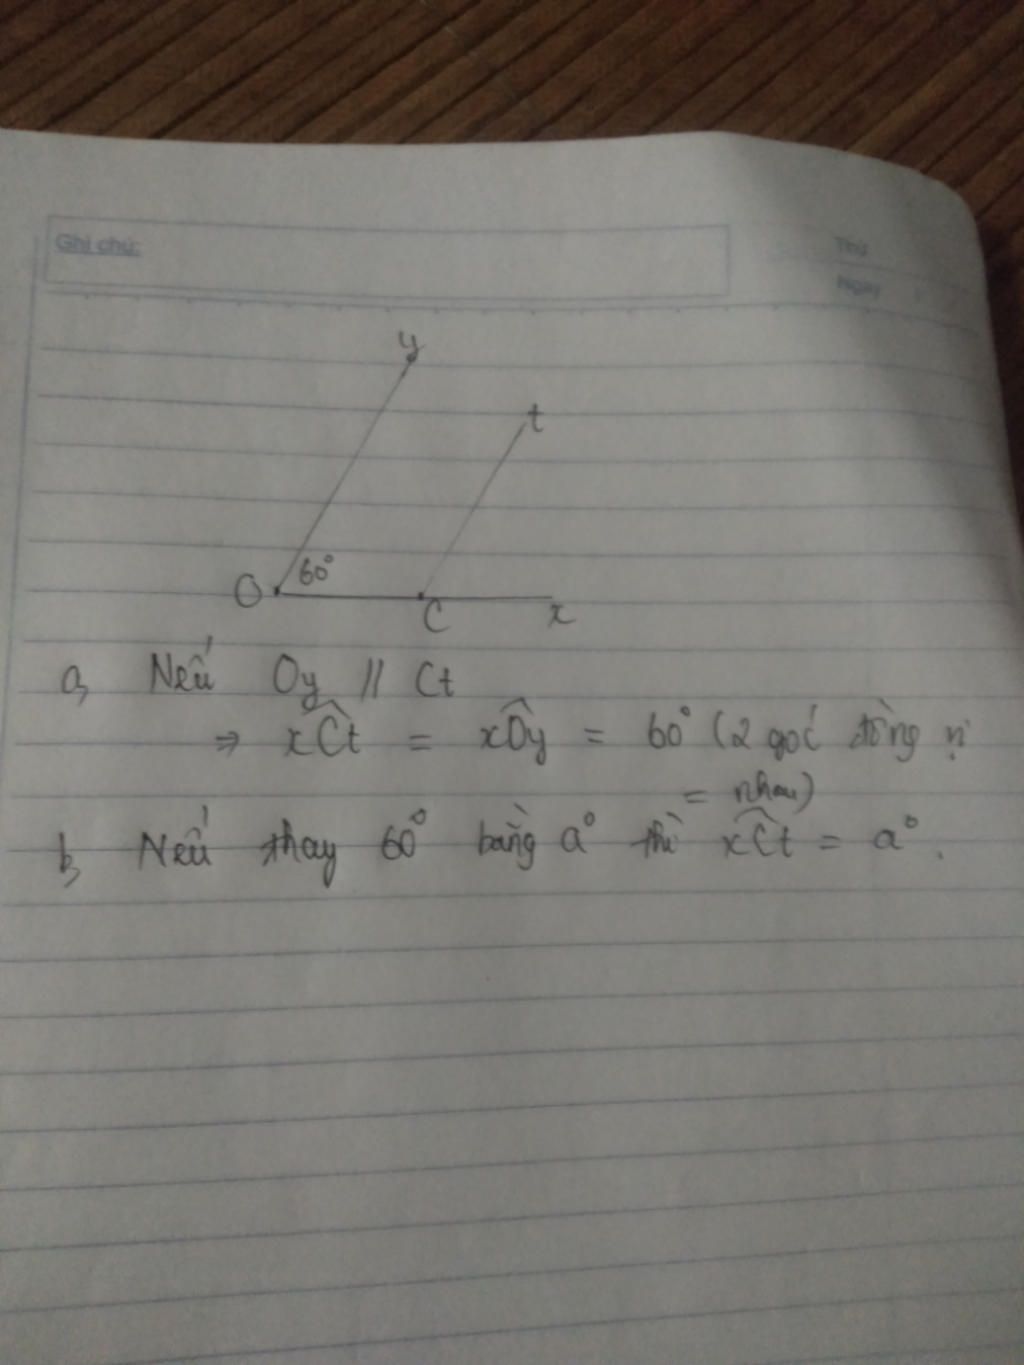 Ghi chú:
Thứ
Ngày
y
t
60°
O
C
x
a, Nếu Oy // Ct
⇒ xĈt = xÔy = 60° (2 góc đồng vị
= nhau)
b, Nếu thay 60° bằng a° thì xĈt = a°.